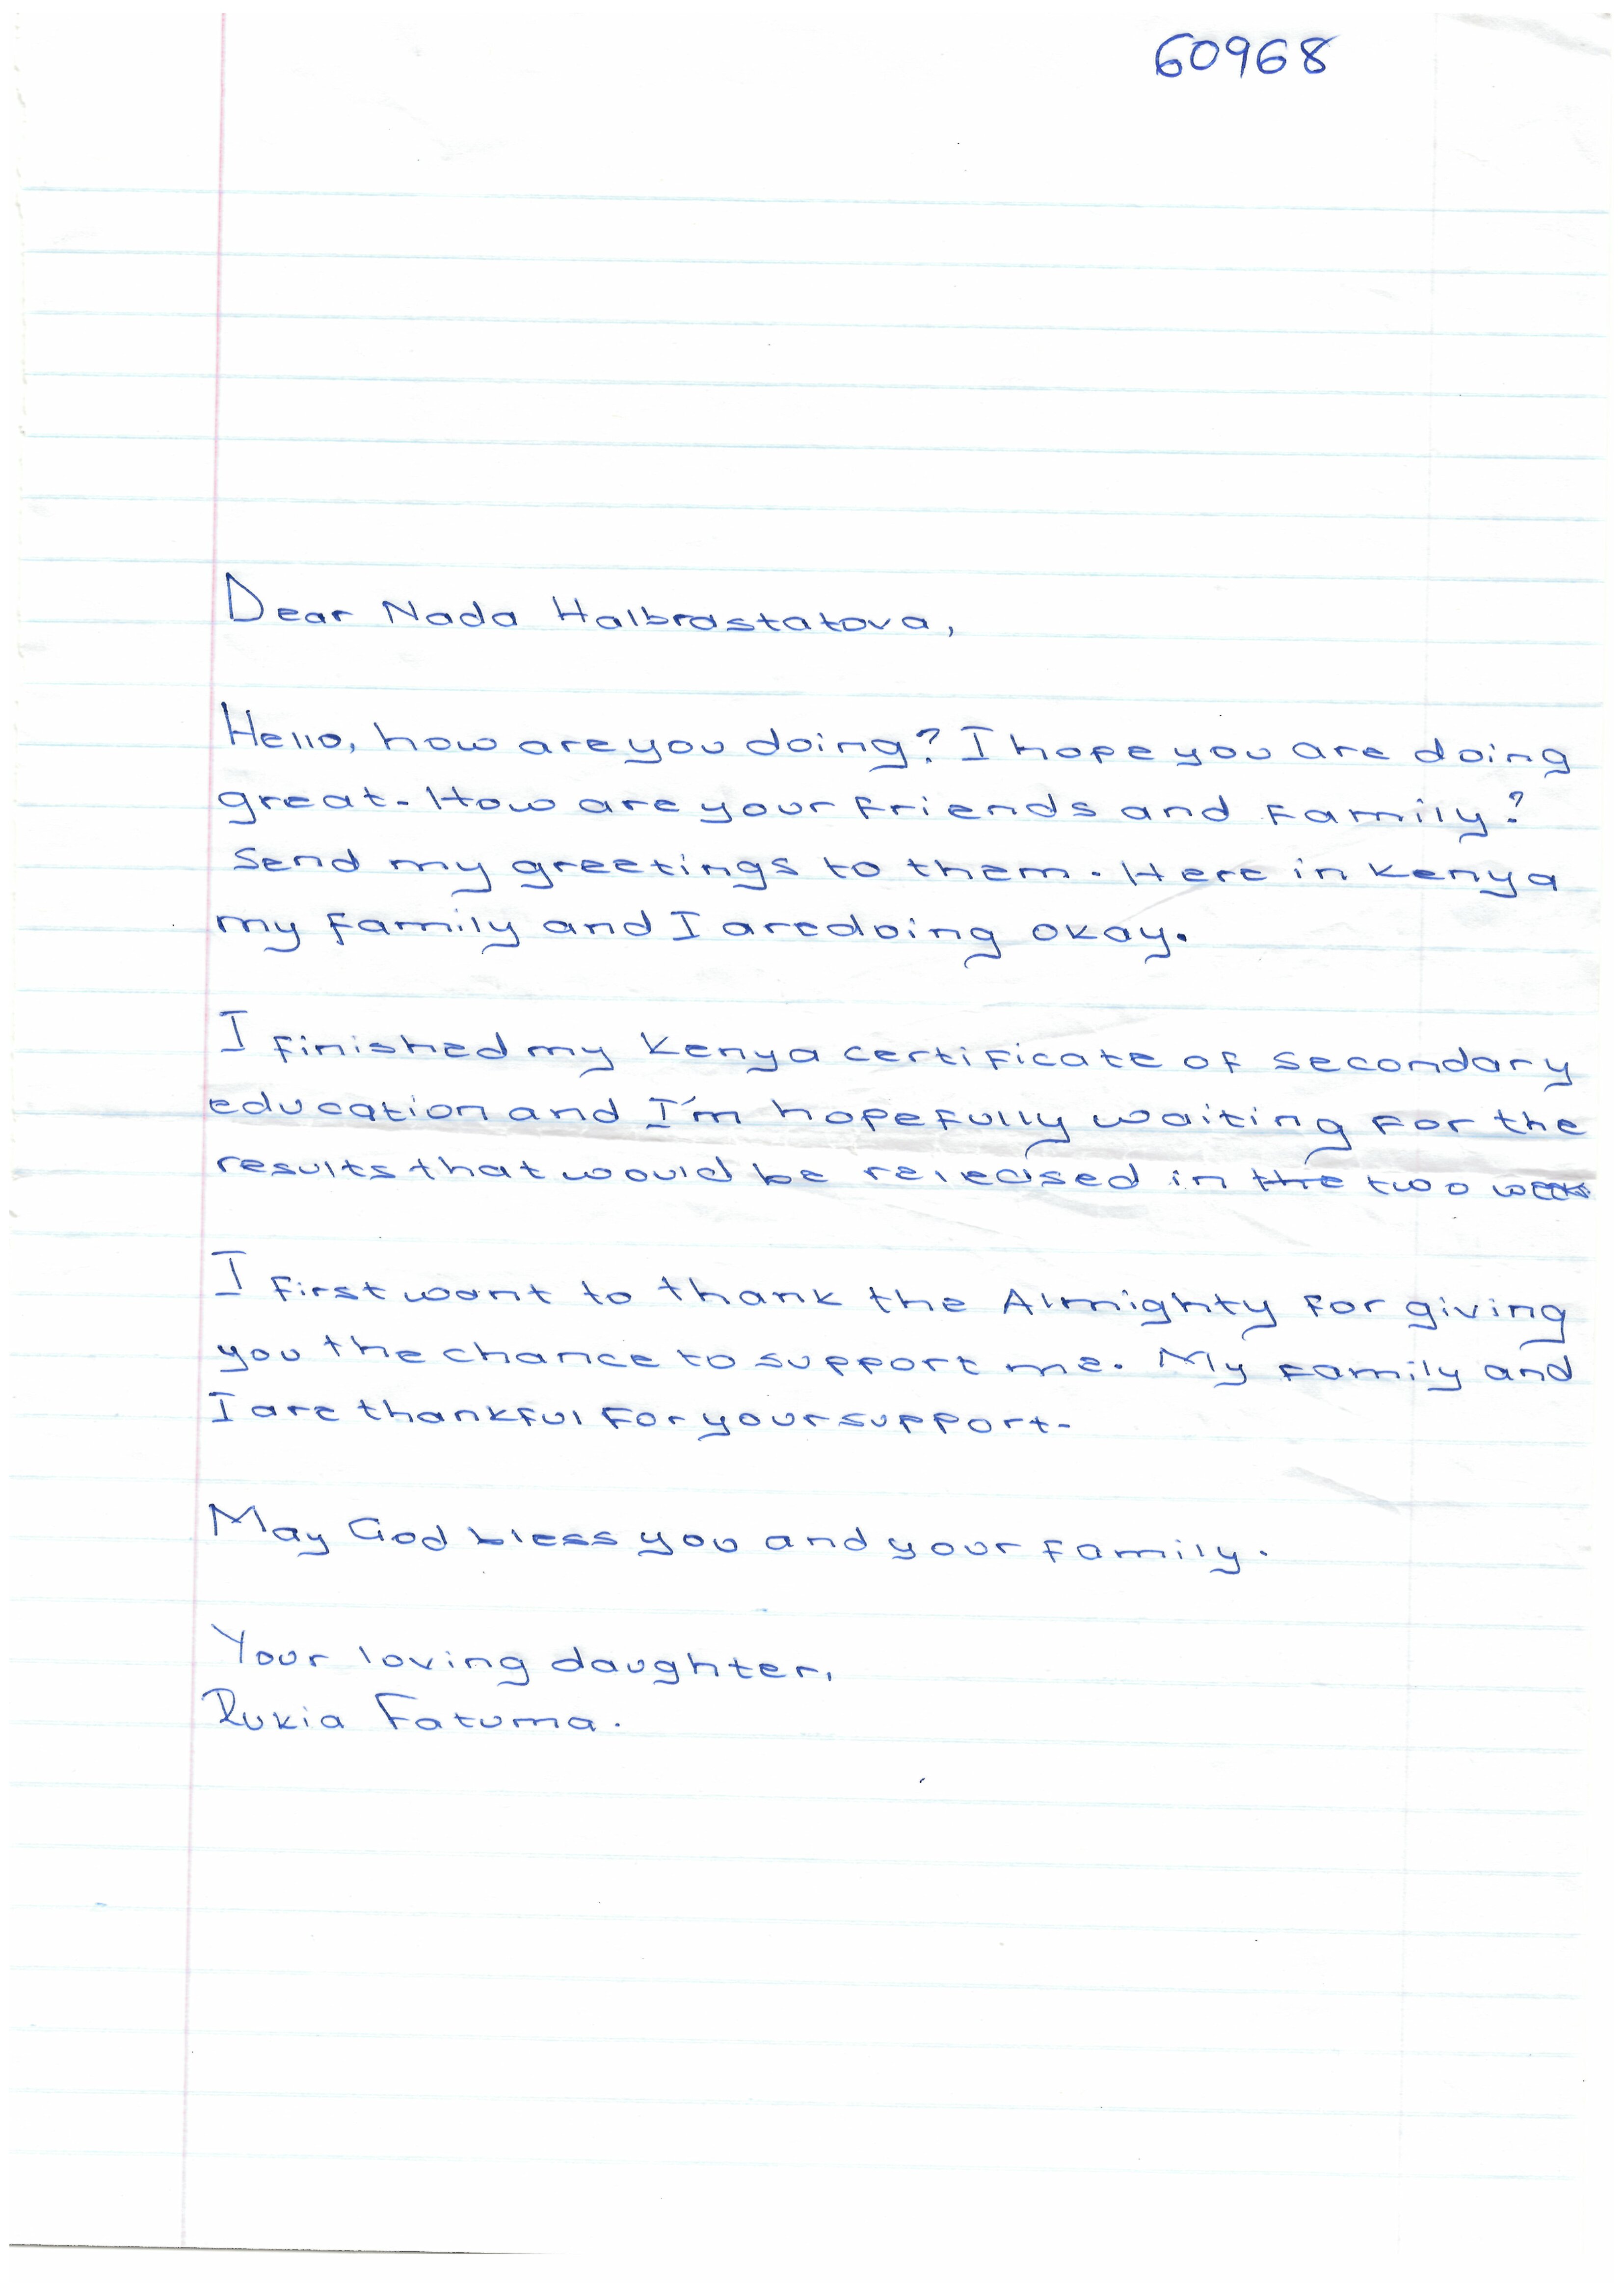 60968
Dear Nada Halbrastatova,
Hello, how are you doing? I hope you are doing
great. How are your friends and family?
Send my greetings to them. Here in Kenya
my family and I are doing okay.
I finished my Kenya certificate of secondary
education and I'm hopefully waiting for the
results that would be released in the two weeks
I first want to thank the Almighty for giving
you the chance to support me. My family and
I are thankful for your support.
May God bless you and your family.
Your loving daughter,
Rukia Fatuma.